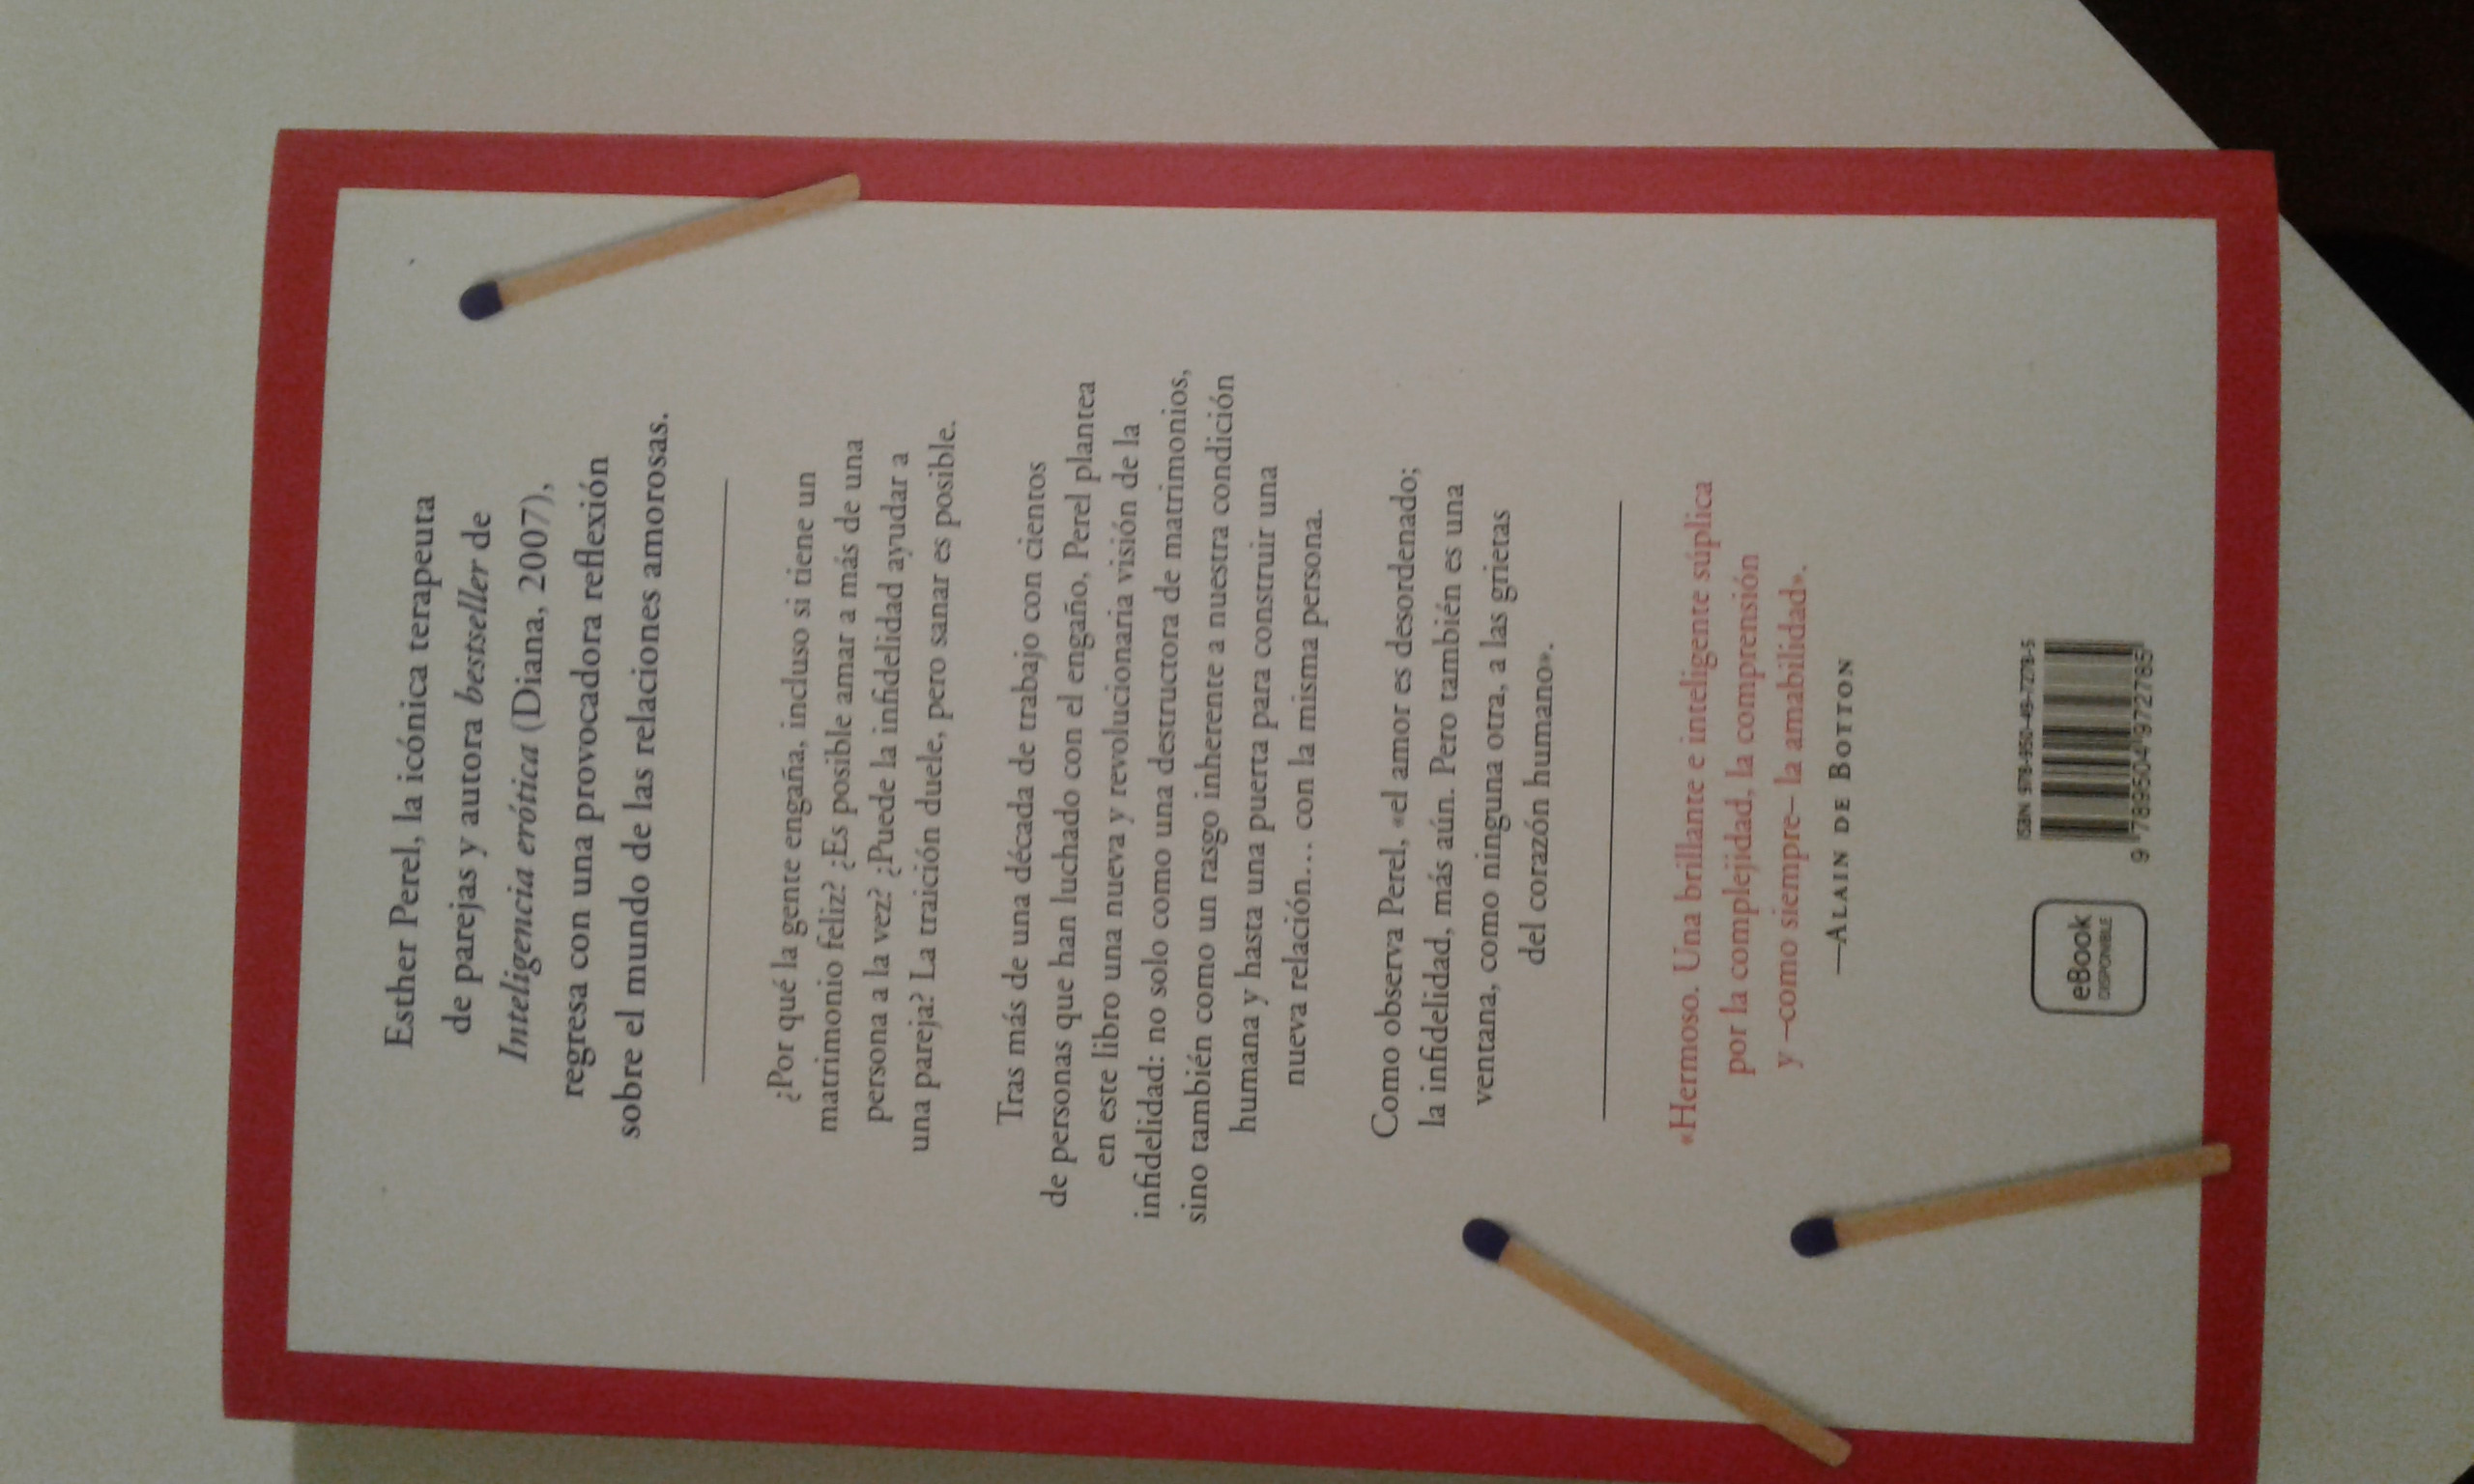 Esther Perel, la icónica terapeuta
de parejas y autora bestseller de
Inteligencia erótica (Diana, 2007),
regresa con una provocadora reflexión
sobre el mundo de las relaciones amorosas.
¿Por qué la gente engaña, incluso si tiene un
matrimonio feliz? ¿Es posible amar a más de una
persona a la vez? ¿Puede la infidelidad ayudar a
una pareja? La traición duele, pero sanar es posible.
Tras más de una década de trabajo con cientos
de personas que han luchado con el engaño, Perel plantea
en este libro una nueva y revolucionaria visión de la
infidelidad: no solo como una destructora de matrimonios,
sino también como un rasgo inherente a nuestra condición
humana y hasta una puerta para construir una
nueva relación... con la misma persona.
Como observa Perel, «el amor es desordenado;
la infidelidad, más aún. Pero también es una
ventana, como ninguna otra, a las grietas
del corazón humano».
«Hermoso. Una brillante e inteligente súplica
por la complejidad, la comprensión
y –como siempre– la amabilidad».
—ALAIN DE BOTTON
eBook
DISPONIBLE
ISBN 978-950-49-7278-5
9 789504 972785